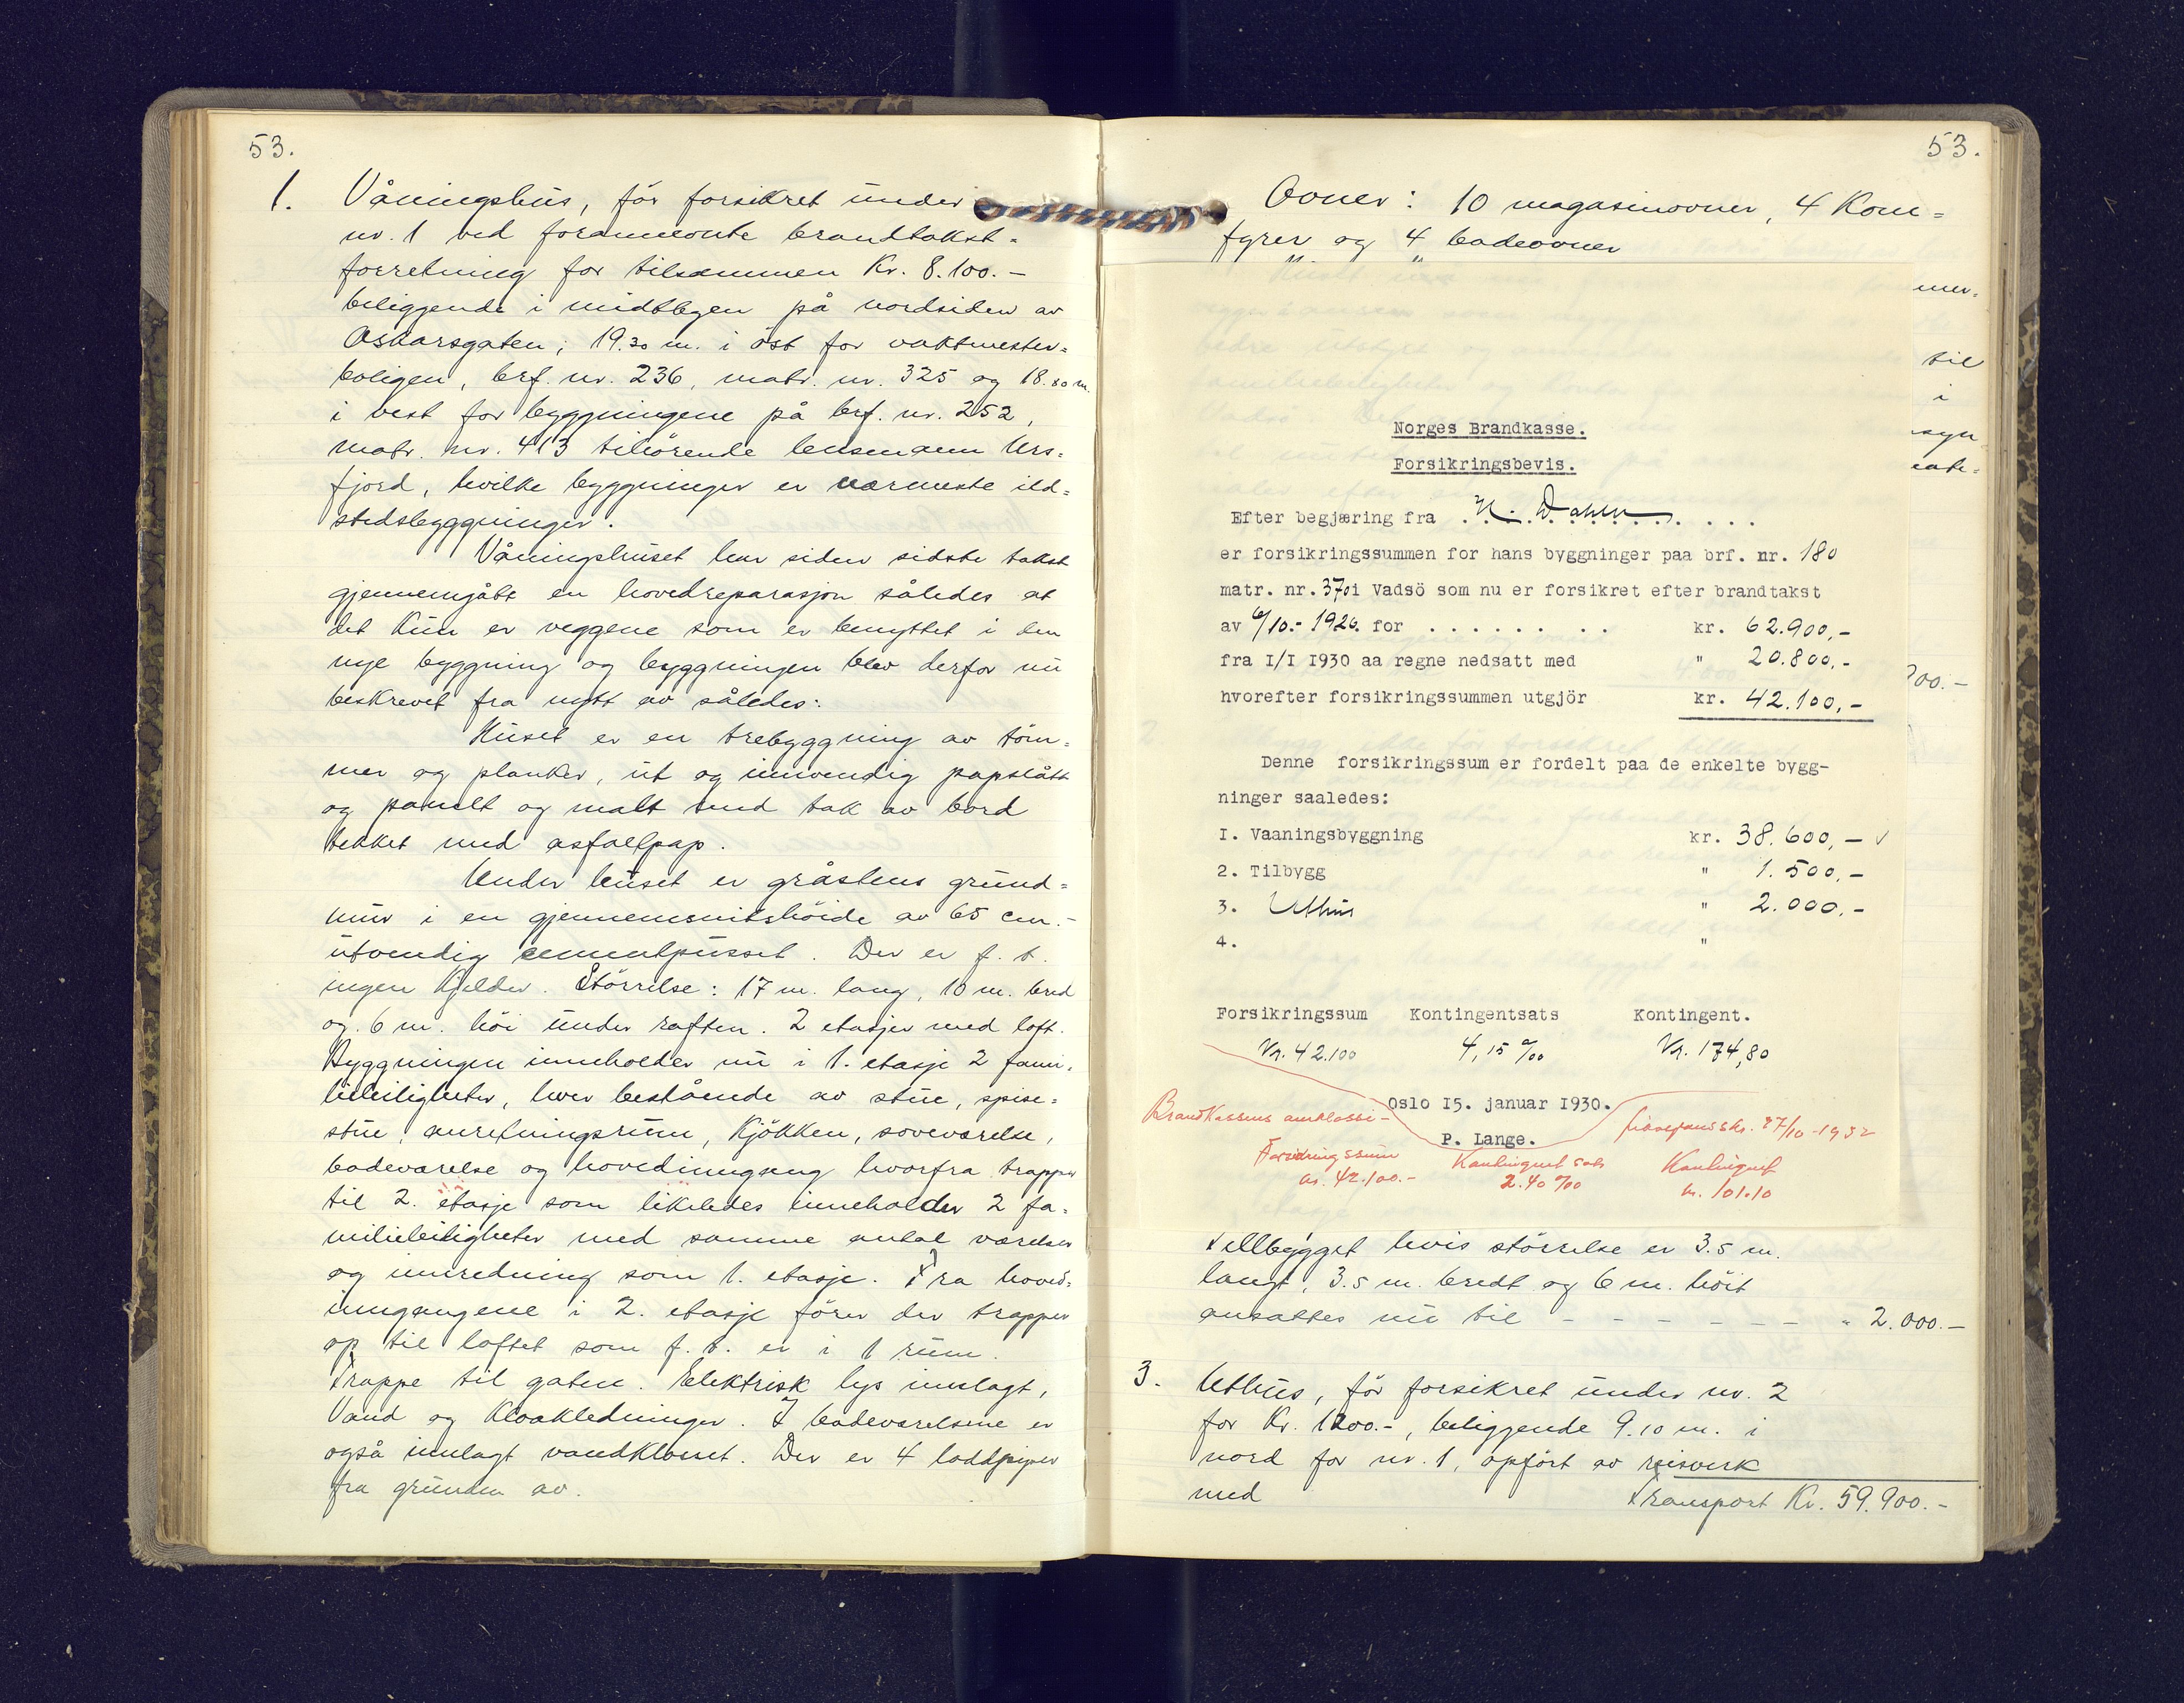 53.
1. Våningshus, før forsikret under
nr. 1 ved forannevnte brandtakst-
forretning for tilsammen Kr. 8.100.-
beliggende i midtbyen på nordsiden av
Oskarsgaten; 19.30 m. i öst for vaktmester-
boligen, brf. nr. 236, matr. nr. 325 og 18.80 m.
i vest for byggningene på brf. nr. 252,
matr. nr. 413 tilhörende lensmann Urs-
fjord, hvilke byggninger er nærmeste ild-
stedsbyggninger.
Våningshuset har siden sidste takst
gjennemgått en hovedreparasjon således at
det kun er veggene som er benyttet i den
nye byggning og byggningen blev derfor nu
beskrevet fra nytt av således:
Huset er en trebyggning av töm-
mer og planker, ut og innvendig papslått
og panelt og malt med tak av bord
tekket med asfaltpap.
Under huset er gråstens grund-
mur i en gjennemsnitshöide av 65 cm.-
utvendig cementpusset. Der er f. t.
ingen kjelder. Störrelse: 17 m. lang, 10 m. bred
og 6 m. höi under raften. 2 etasjer med loft.
Byggningen inneholder nu i 1. etasje 2 fami-
lieleiligheter, hver bestående av stue, spise-
stue, anretningsrum, kjökken, soveværelse,
badeværelse og hovedinngang hvorfra trapper
til 2. etasje som likeledes inneholder 2 fa-
milieleiligheter med samme antal værelser
og innredning som 1. etasje. Fra hoved-
inngangene i 2. etasje förer der trapper
op til loftet som f. t. er i 1 rum.
Trappe til gaten. Elektrisk lys innlagt,
Vand og kloakledninger. I badeværelsene er
også innlagt vandkloset. Der er 4 loddpiper
fra grunden av.
53.
Ovner: 10 magasinovner, 4 Kom-
fyrer og 4 badeovner
mer-
til
i
syn
Norges Brandkasse.
Forsikringsbevis.
Efter begjæring fra H. Dahl
er forsikringssummen for hans byggninger paa brf. nr. 180
matr. nr. 370 i Vadsö som nu er forsikret efter brandtakst
av 6/10.- 1926. for . . . . . . . . . kr. 62.900,-
fra I/I 1930 aa regne nedsatt med " 20.800,-
00.-
hvorefter forsikringssummen utgjör kr. 42.100,-
Denne forsikringssum er fordelt paa de enkelte bygg-
ninger saaledes:
I. Vaaningsbyggning kr. 38.600,- ✓
2. Tilbygg " 1.500,-
3. Uthus " 2.000.-
4. "
Forsikringssum Kontingentsats Kontingent.
Kr. 42.100 4,15 ‰ Kr. 174,80
Oslo 15. januar 1930.
P. Lange.
Brandkassens omklassi-
fiseringsskr. 27/10-1932
Forsikringssum Kontingent sats Kontingent
kr. 42.100.- 2.40 ‰ kr. 101.10
Tillbygget hvis störrelse er 3.5 m.
langt, 3.5 m. bredt og 6 m. höit
ansattes nu til - - - - - - - " 2.000.-
3. Uthus, för forsikret under nr. 2
for Kr. 1200.-, beliggende 9.10 m. i
nord for nr. 1, opfört av reisverk
med
Transport Kr. 59.900.-